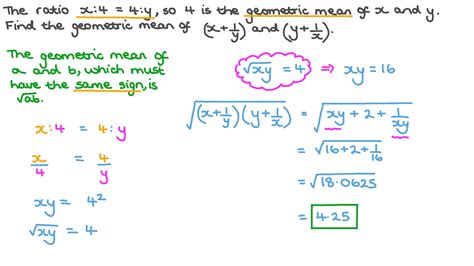 The ratio x:4 = 4:y, so 4 is the geometric mean of x and y.
Find the geometric mean of (x+1/y) and (y+1/x).
The geometric mean of
a and b, which must
have the same sign, is
√ab.
x:4 = 4:y
x/4 = 4/y
xy = 4²
√xy = 4
√xy = 4 ⇒ xy = 16
√(x+1/y)(y+1/x) = √xy + 2 + 1/xy
= √16 + 2 + 1/16
= √18.0625
= 4.25